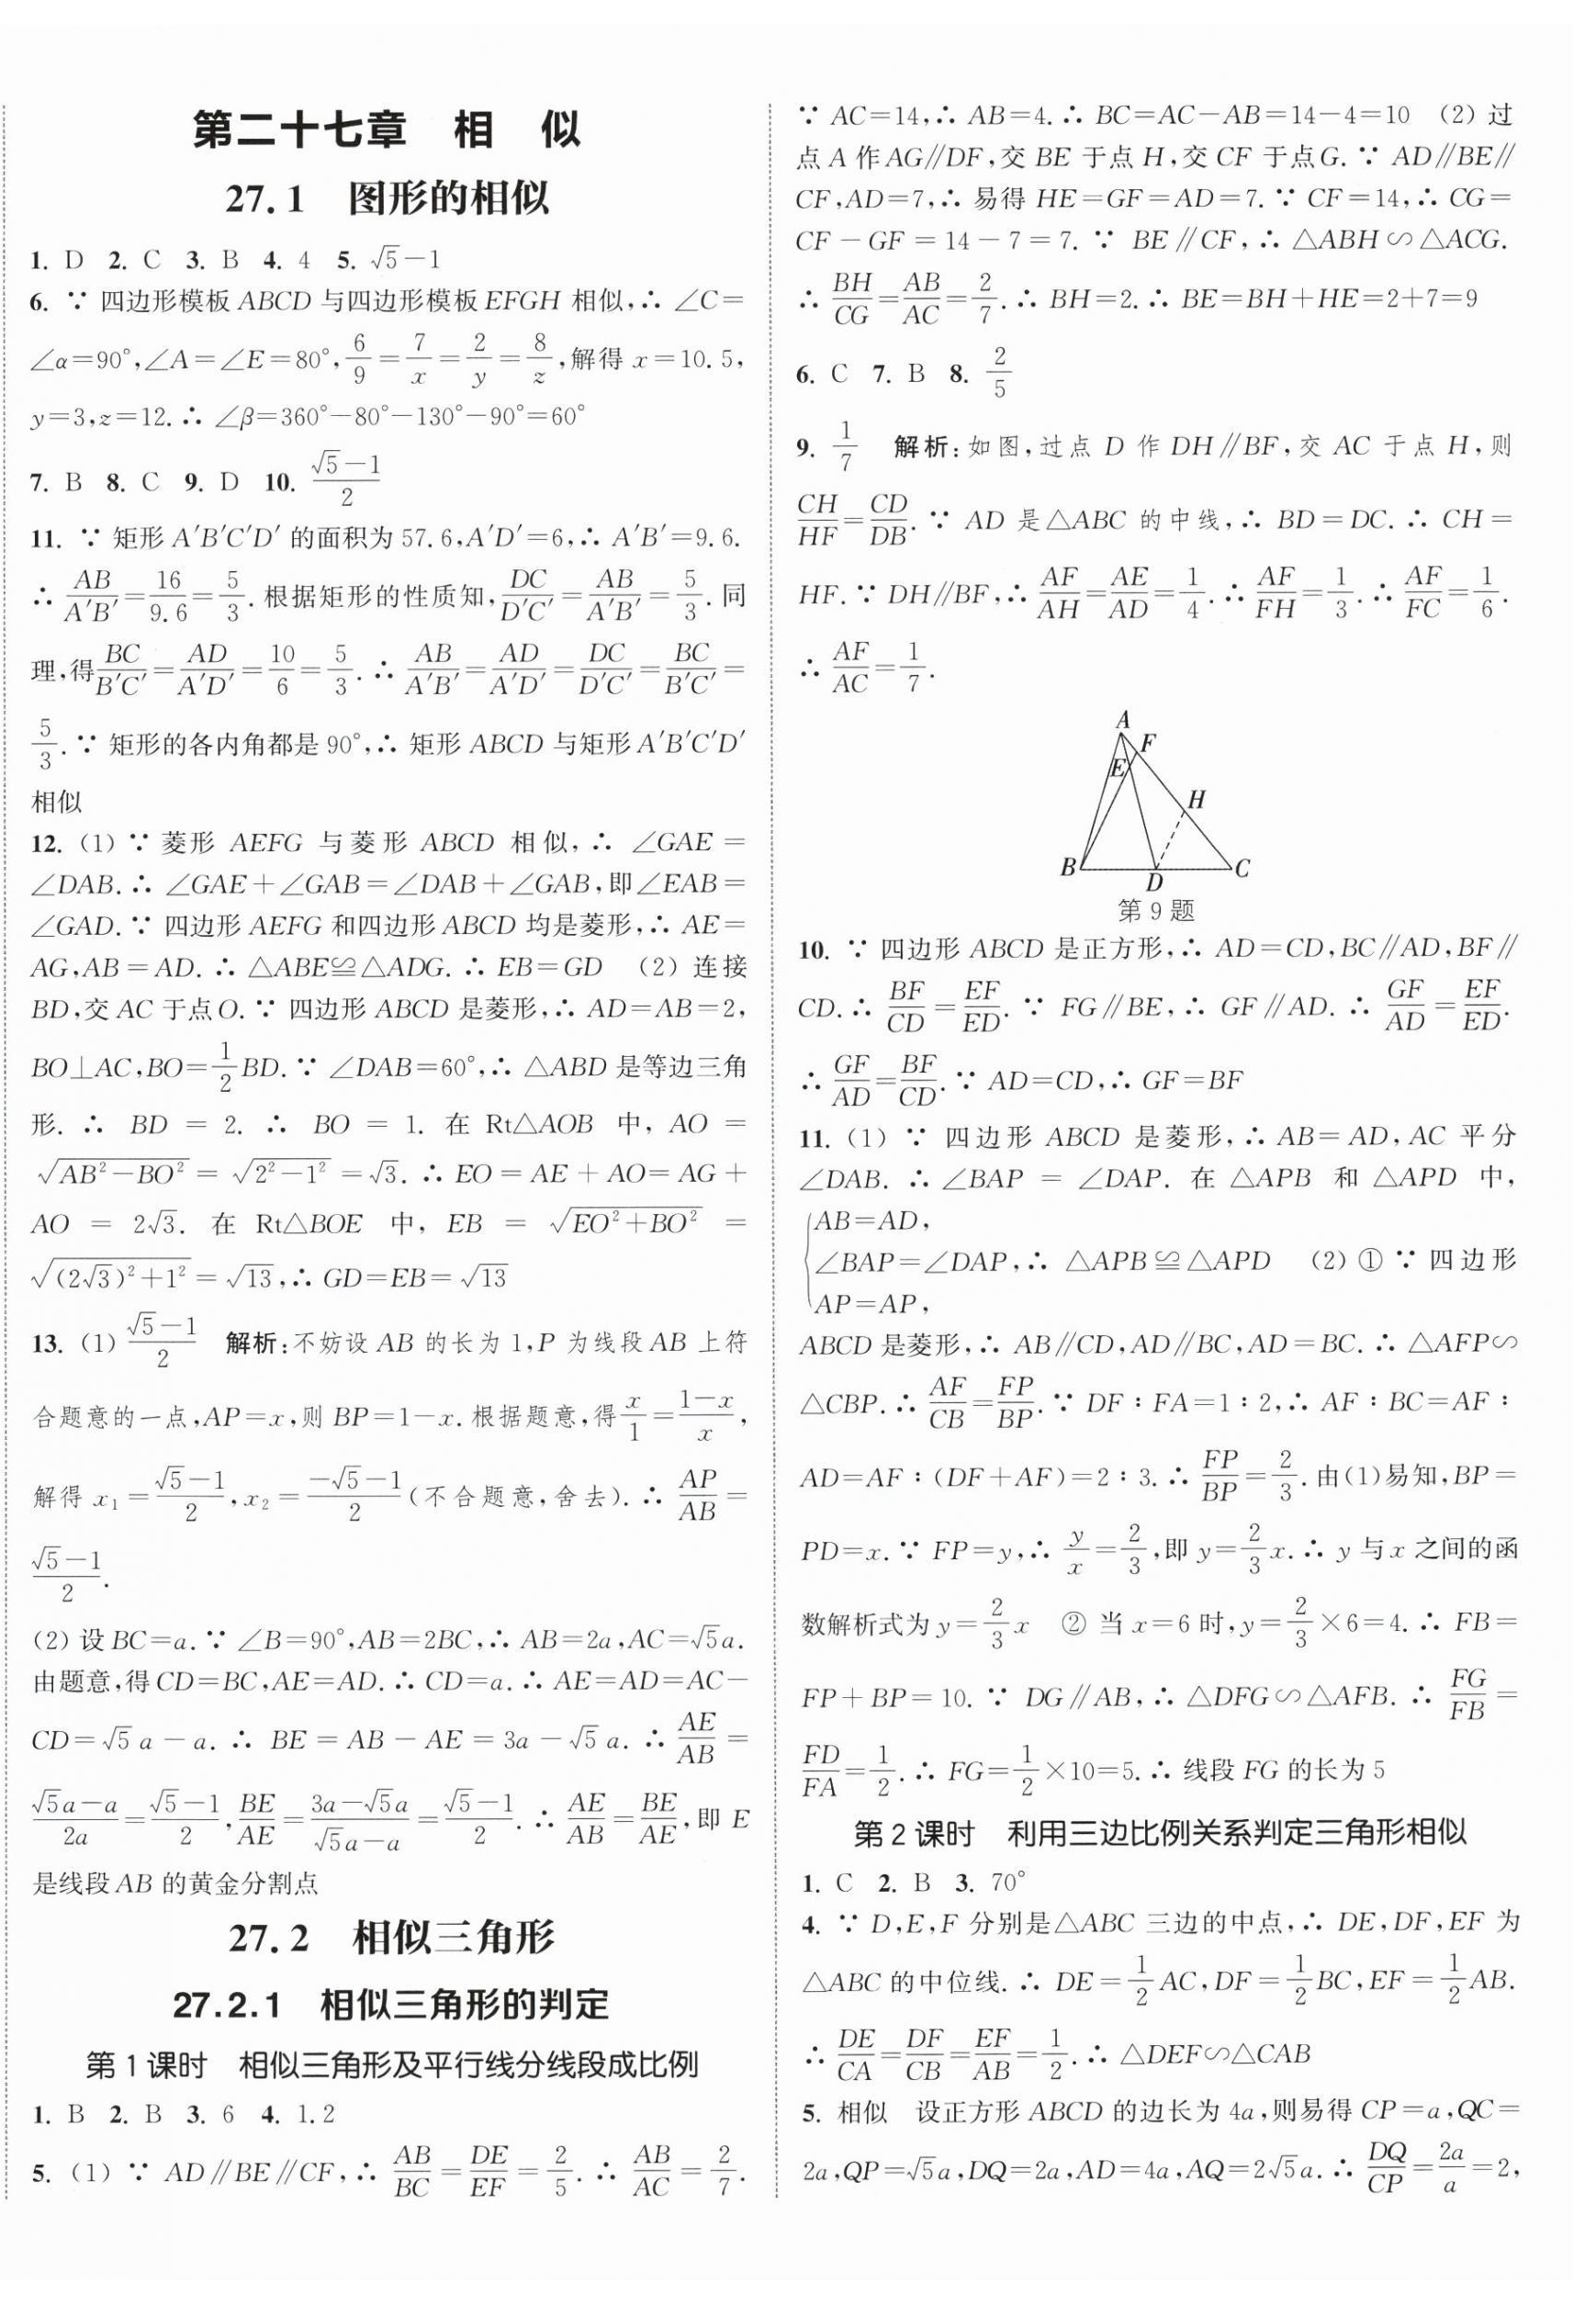 第二十七章　相　似
27.1　图形的相似
1. D　2. C　3. B　4. 4　5. √5−1
6. ∵ 四边形模板 ABCD 与四边形模板 EFGH 相似,∴ ∠C=
∠α=90°,∠A=∠E=80°,6/9=7/x=2/y=8/z,解得 x=10.5,
y=3,z=12.∴ ∠β=360°−80°−130°−90°=60°
7. B　8. C　9. D　10. (√5−1)/2
11. ∵ 矩形 A′B′C′D′ 的面积为 57.6,A′D′=6,∴ A′B′=9.6.
∴ AB/A′B′=16/9.6=5/3.根据矩形的性质知,DC/D′C′=AB/A′B′=5/3.同
理,得BC/B′C′=AD/A′D′=10/6=5/3.∴ AB/A′B′=AD/A′D′=DC/D′C′=BC/B′C′=
5/3.∵ 矩形的各内角都是 90°,∴ 矩形 ABCD 与矩形 A′B′C′D′
相似
12. (1) ∵ 菱形 AEFG 与菱形 ABCD 相似,∴ ∠GAE=
∠DAB.∴ ∠GAE+∠GAB=∠DAB+∠GAB,即∠EAB=
∠GAD.∵ 四边形 AEFG 和四边形 ABCD 均是菱形,∴ AE=
AG,AB=AD.∴ △ABE≌△ADG.∴ EB=GD　(2) 连接
BD,交 AC 于点 O.∵ 四边形 ABCD 是菱形,∴ AD=AB=2,
BO⊥AC,BO=1/2BD.∵ ∠DAB=60°,∴ △ABD 是等边三角
形.∴ BD=2.∴ BO=1.在 Rt△AOB 中,AO=
√(AB²−BO²)=√(2²−1²)=√3.∴ EO=AE+AO=AG+
AO=2√3.在 Rt△BOE 中,EB=√(EO²+BO²)=
√((2√3)²+1²)=√13,∴ GD=EB=√13
13. (1) (√5−1)/2　解析:不妨设 AB 的长为 1,P 为线段 AB 上符
合题意的一点,AP=x,则 BP=1−x.根据题意,得x/1=(1−x)/x,
解得 x₁=(√5−1)/2,x₂=(−√5−1)/2(不合题意,舍去).∴ AP/AB=
(√5−1)/2.
(2) 设 BC=a.∵ ∠B=90°,AB=2BC,∴ AB=2a,AC=√5a.
由题意,得 CD=BC,AE=AD.∴ CD=a.∴ AE=AD=AC−
CD=√5a−a.∴ BE=AB−AE=3a−√5a.∴ AE/AB=
(√5a−a)/2a=(√5−1)/2,BE/AE=(3a−√5a)/(√5a−a)=(√5−1)/2.∴ AE/AB=BE/AE,即 E
是线段 AB 的黄金分割点
27.2　相似三角形
27.2.1　相似三角形的判定
第 1 课时　相似三角形及平行线分线段成比例
1. B　2. B　3. 6　4. 1.2
5. (1) ∵ AD∥BE∥CF,∴ AB/BC=DE/EF=2/5.∴ AB/AC=2/7.
∵ AC=14,∴ AB=4.∴ BC=AC−AB=14−4=10　(2) 过
点 A 作 AG∥DF,交 BE 于点 H,交 CF 于点 G.∵ AD∥BE∥
CF,AD=7,∴ 易得 HE=GF=AD=7.∵ CF=14,∴ CG=
CF−GF=14−7=7.∵ BE∥CF,∴ △ABH∽△ACG.
∴ BH/CG=AB/AC=2/7.∴ BH=2.∴ BE=BH+HE=2+7=9
6. C　7. B　8. 2/5
9. 1/7　解析:如图,过点 D 作 DH∥BF,交 AC 于点 H,则
CH/HF=CD/DB.∵ AD 是△ABC 的中线,∴ BD=DC.∴ CH=
HF.∵ DH∥BF,∴ AF/AH=AE/AD=1/4.∴ AF/FH=1/3.∴ AF/FC=1/6.
∴ AF/AC=1/7.
A
F
E
H
B
C
D
第 9 题
10. ∵ 四边形 ABCD 是正方形,∴ AD=CD,BC∥AD,BF∥
CD.∴ BF/CD=EF/ED.∵ FG∥BE,∴ GF∥AD.∴ GF/AD=EF/ED.
∴ GF/AD=BF/CD.∵ AD=CD,∴ GF=BF
11. (1) ∵ 四边形 ABCD 是菱形,∴ AB=AD,AC 平分
∠DAB.∴ ∠BAP=∠DAP.在 △APB 和 △APD 中,
AB=AD,
∠BAP=∠DAP,∴ △APB≌△APD　(2) ① ∵ 四边形
AP=AP,
ABCD 是菱形,∴ AB∥CD,AD∥BC,AD=BC.∴ △AFP∽
△CBP.∴ AF/CB=FP/BP.∵ DF∶FA=1∶2,∴ AF∶BC=AF∶
AD=AF∶(DF+AF)=2∶3.∴ FP/BP=2/3.由(1)易知,BP=
PD=x.∵ FP=y,∴ y/x=2/3,即 y=2/3x.∴ y 与 x 之间的函
数解析式为 y=2/3x　② 当 x=6 时,y=2/3×6=4.∴ FB=
FP+BP=10.∵ DG∥AB,∴ △DFG∽△AFB.∴ FG/FB=
FD/FA=1/2.∴ FG=1/2×10=5.∴ 线段 FG 的长为 5
第 2 课时　利用三边比例关系判定三角形相似
1. C　2. B　3. 70°
4. ∵ D,E,F 分别是△ABC 三边的中点,∴ DE,DF,EF 为
△ABC 的中位线.∴ DE=1/2AC,DF=1/2BC,EF=1/2AB.
∴ DE/CA=DF/CB=EF/AB=1/2.∴ △DEF∽△CAB
5. 相似　设正方形 ABCD 的边长为 4a,则易得 CP=a,QC=
2a,QP=√5a,DQ=2a,AD=4a,AQ=2√5a.∴ DQ/CP=2a/a=2,